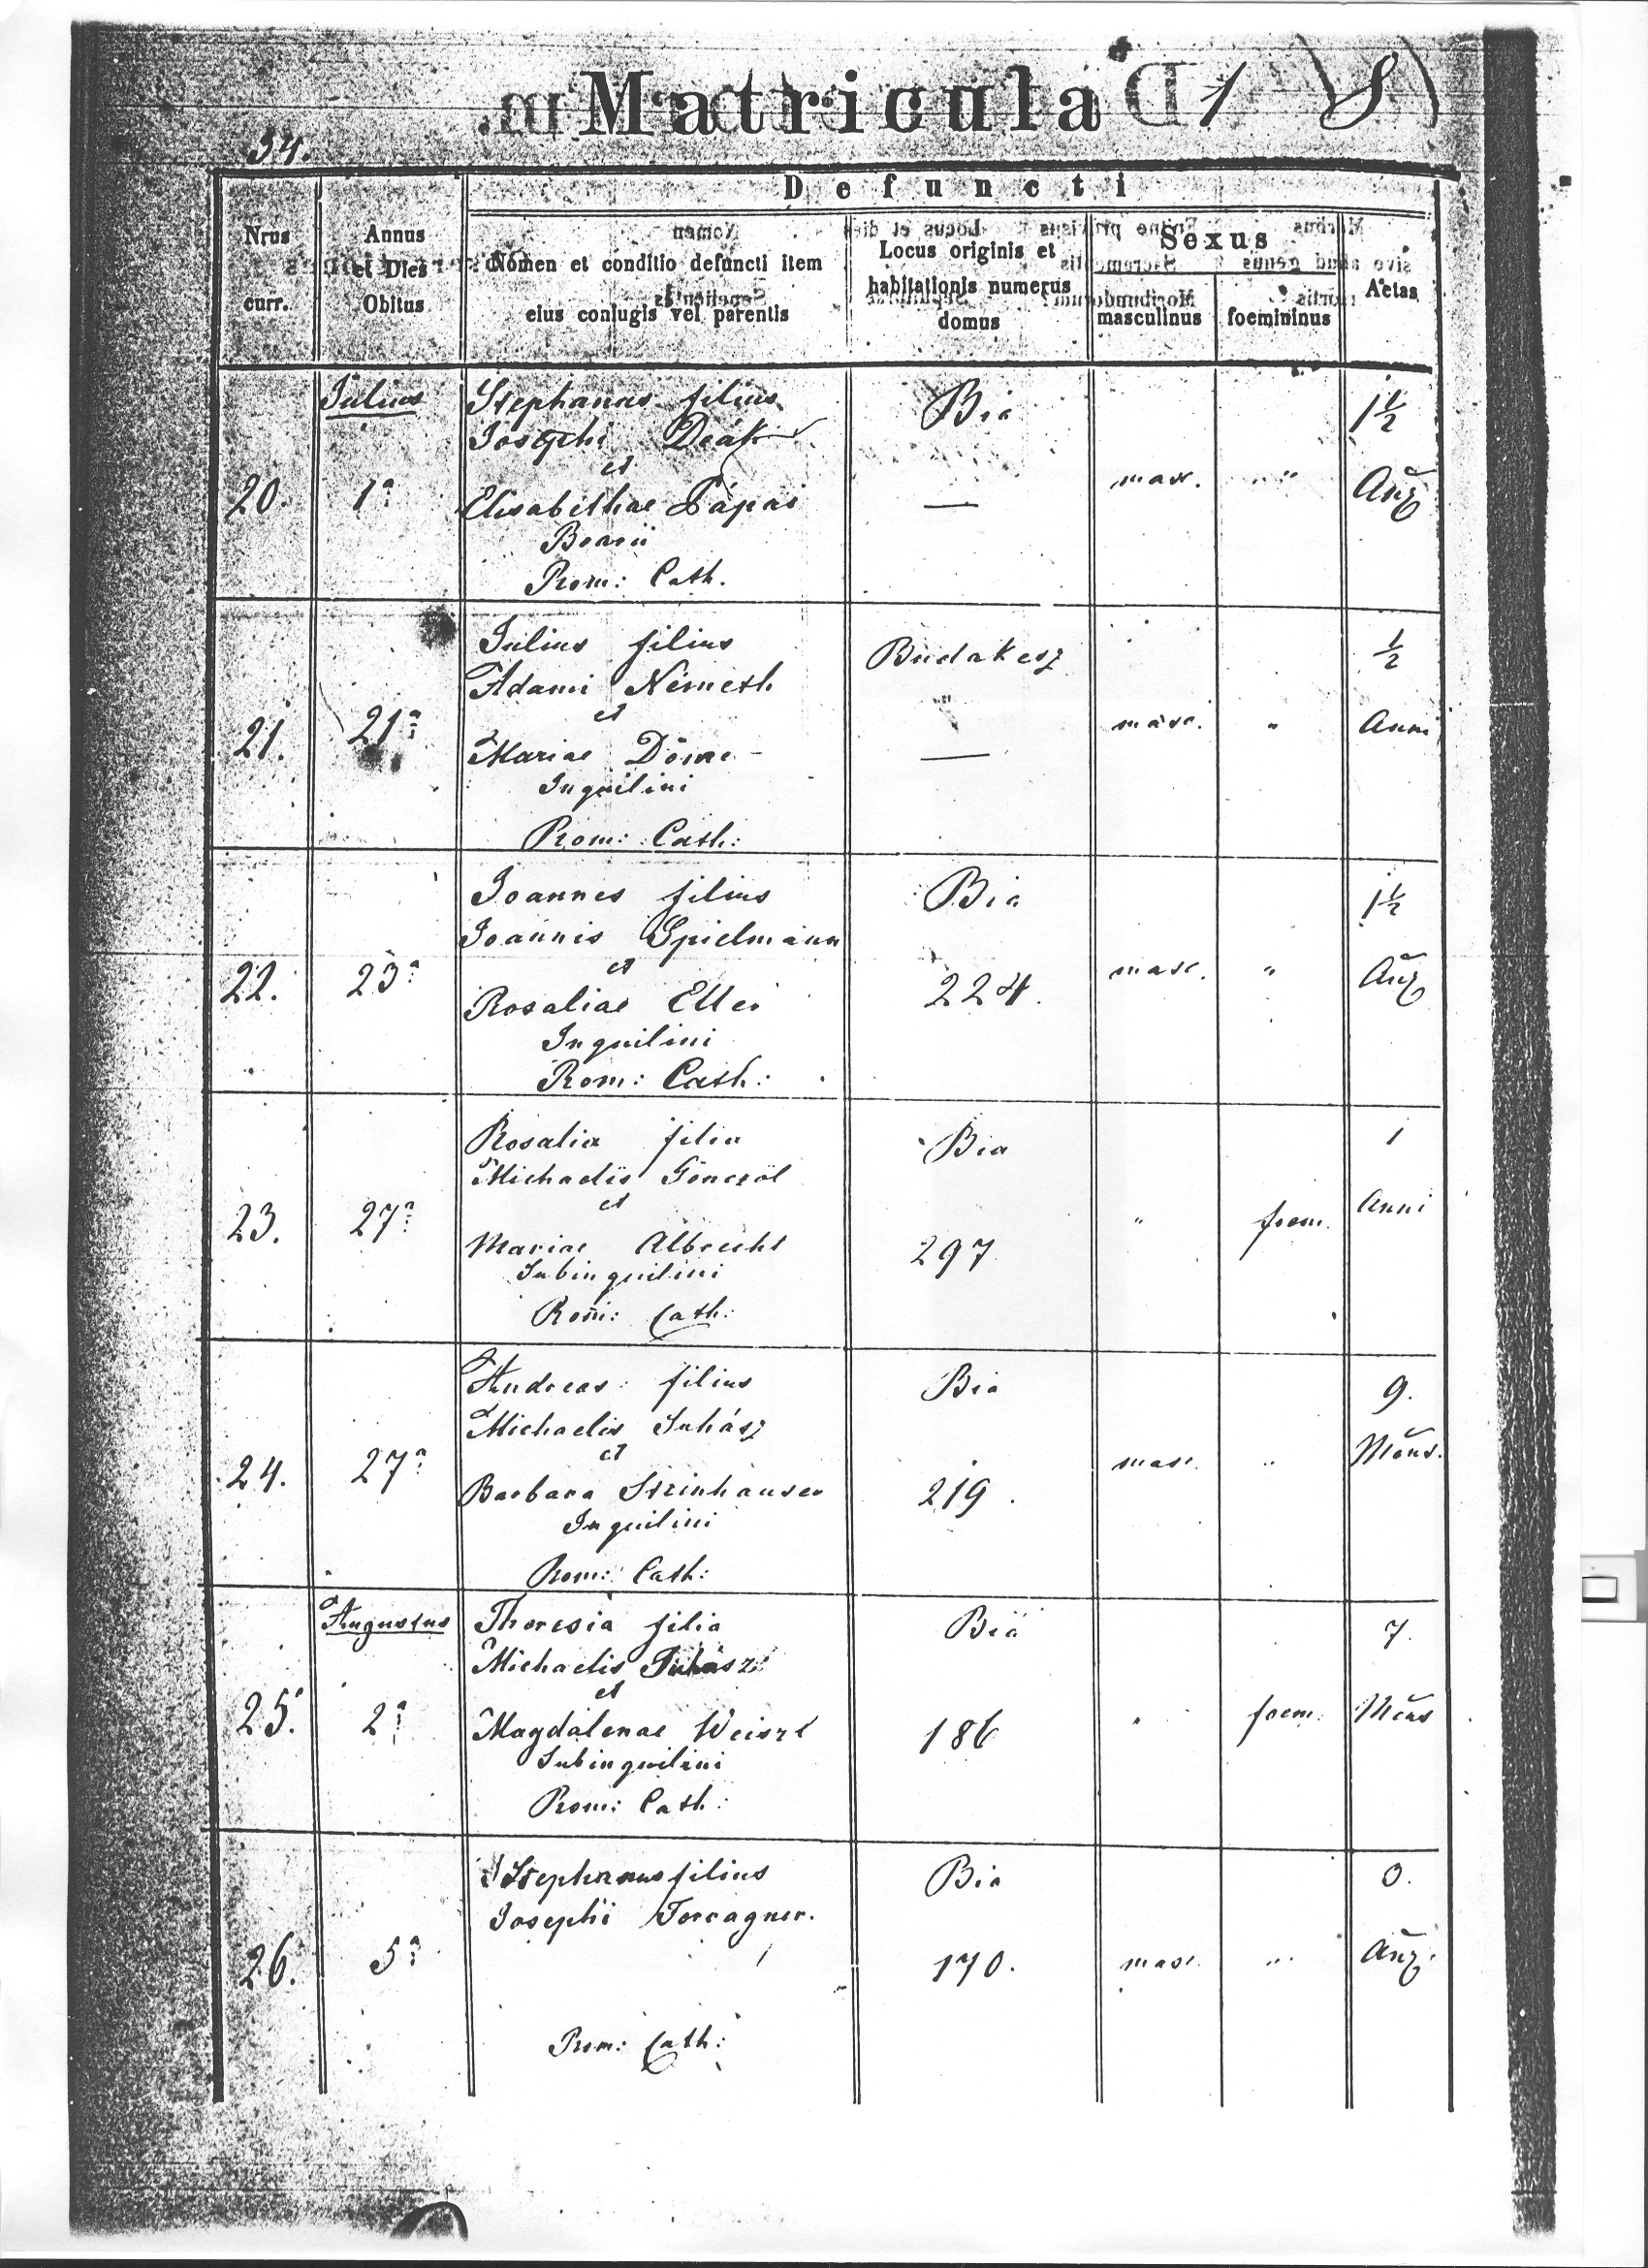 Matricula
34.
Defuncti
Nrus curr.
Annus et Dies Obitus
Nomen et conditio defuncti item eius coniugis vel parentis
Locus originis et habitationis numerus domus
Sexus
masculinus
foemininus
Aetas
Julius
Stephanus filius
Bia
1½
Josephi Deák
et
20. 1ª
masc. "
Anõ
Elisabethae Pápai
—
Rom: Cath.
Julius filius
Budakesz
½
Adami Németh
et
21. 21ª
masc. "
Anni
Mariae Döme
—
Inquilini
Rom: Cath:
Joannes filius
Bia
1½
Joannis Spielmann
et
22. 23ª
224.
masc. "
Rosaliae Etter
Inquilini
Rom: Cath:
Rosalia filia
Bia
1
Michaelis Gönczöl
et
23. 27ª
" foem.
Anni
Mariae Albrecht
297
Subinquilini
Rom: Cath:
Andreas filius
Bia
9.
Michaelis Juhász
et
24. 27ª
masc. "
Mens.
Barbara Steinhauser
219.
Inquilini
Rom: Cath:
Augustus
Theresia filia
Bia
7.
Michaelis Juhász
et
25. 2ª
" foem.
Mens
Magdalenae Weiszl
186
Subinquilini
Rom: Cath:
Stephanus filius
Bia
3.
Josephi
26. 5ª
170.
masc. "
Rom: Cath: